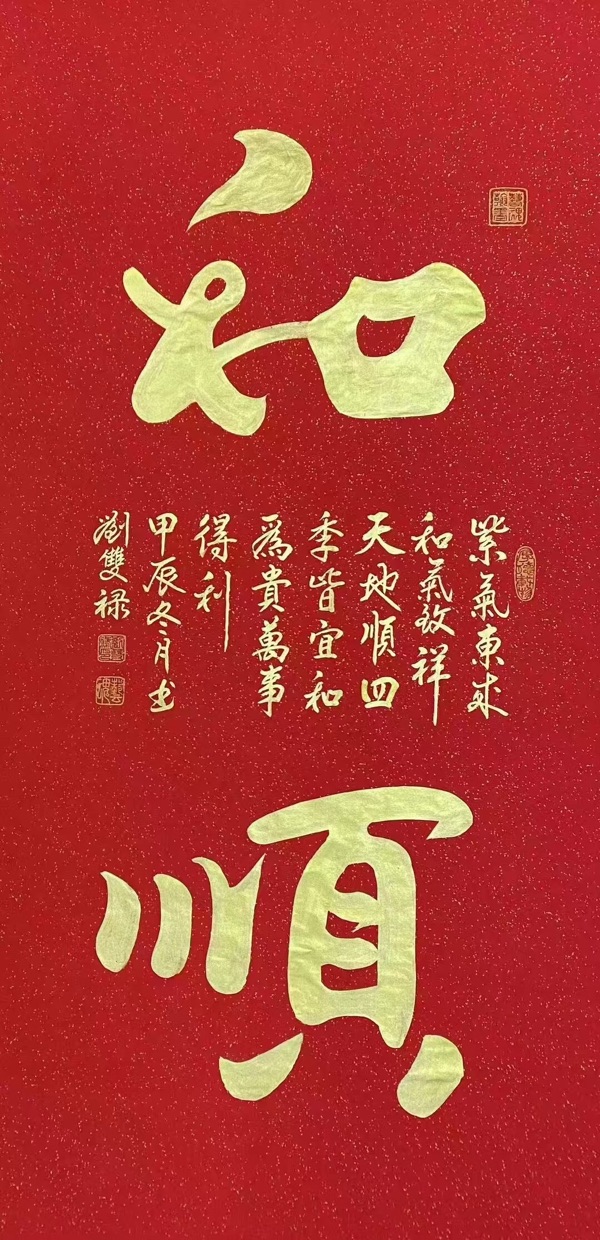 和
順
紫氣東來
和氣致祥
天地順四
季皆宜和
爲貴萬事
得利
甲辰冬月书
劉雙禄